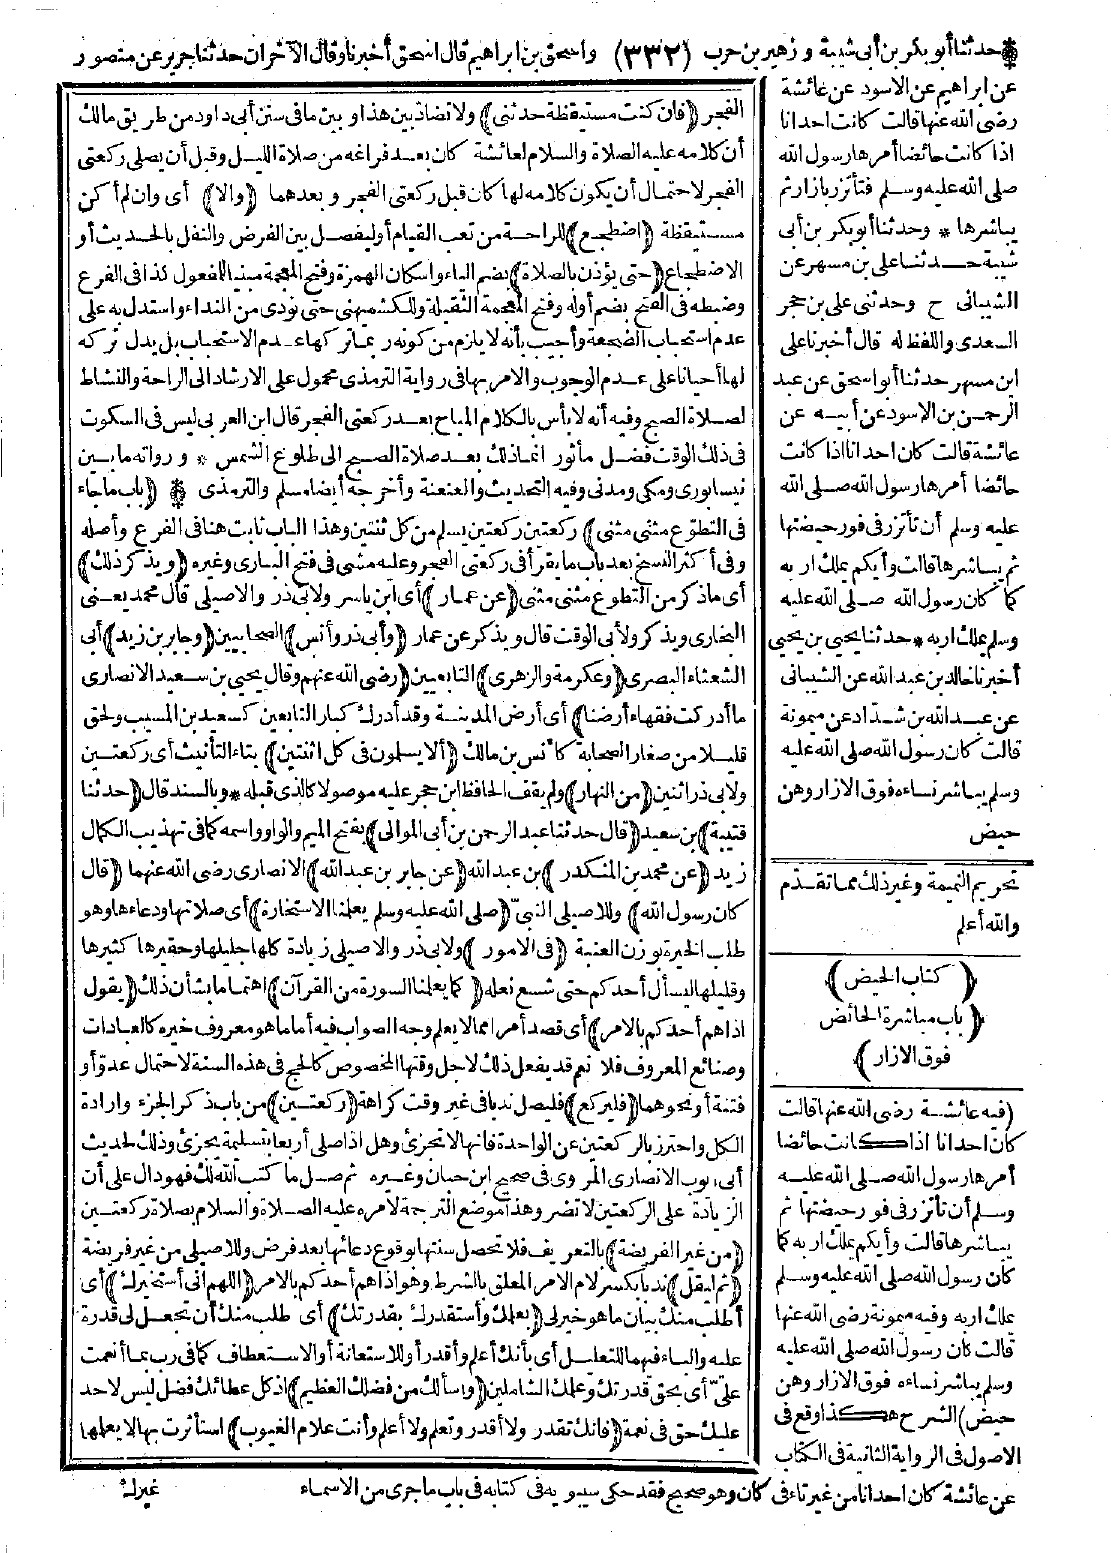 حدثنا أبو بكر بن أبى شيبة وزهير بن حرب (٣٣٢) واسحق بن ابراهيم قال اسحق أخبرنا وقال الآخران حدثنا جرير عن منصور
عن ابراهيم عن الاسود عن عائشة
رضى الله عنها قالت كانت احدانا
اذا كانت حائضا أمرها رسول الله
صلى الله عليه وسلم فتأتزر بازار ثم
يباشرها * وحدثنا أبو بكر بن أبى
شيبة حدثنا على بن مسهر عن
الشيبانى ح وحدثنى على بن حجر
السعدى واللفظ له قال أخبرنا على
ابن مسهر حدثنا أبو اسحق عن عبد
الرحمن بن الاسود عن أبيه عن
عائشة قالت كان احدانا اذا كانت
حائضا أمرها رسول الله صلى الله
عليه وسلم أن تأتزر فى فور حيضتها
ثم يباشرها قالت وأيكم يملك اربه
كما كان رسول الله صلى الله عليه
وسلم يملك اربه * حدثنا يحيى بن يحيى
أخبرنا خالد بن عبد الله عن الشيبانى
عن عبد الله بن شداد عن ميمونة
قالت كان رسول الله صلى الله عليه
وسلم يباشر نساءه فوق الازار وهن
حيض
تحريم النميمة وغير ذلك مما تقدم
والله أعلم
(كتاب الحيض)
(باب مباشرة الحائض
فوق الازار)
(فيه عائشة رضى الله عنها قالت
كان احدانا اذا كانت حائضا
أمرها رسول الله صلى الله عليه
وسلم أن تأتزر فى فور حيضتها ثم
يباشرها قالت وأيكم يملك اربه كما
كان رسول الله صلى الله عليه وسلم
يملك اربه وفيه ميمونة رضى الله عنها
قالت كان رسول الله صلى الله عليه
وسلم يباشر نساءه فوق الازار وهن
حيض) الشرح هكذا وقع فى
الاصول فى الرواية الثانية فى الكتاب
عن عائشة كان احدانا من غير تاء فى كان وهو صحيح فقد حكى سيبويه فى كتابه فى باب ما جرى من الاسماء
الفجر (فان كنت مستيقظة حدثنى) ولا تضاد بين هذا وبين ما فى سنن أبى داود من طريق مالك
أن كلامه عليه الصلاة والسلام لعائشة كان بعد فراغه من صلاة الليل وقبل أن يصلى ركعتى
الفجر لاحتمال أن يكون كلامه لها كان قبل ركعتى الفجر وبعدهما (والا) أى وان لم أكن
مستيقظة (اضطجع) للراحة من تعب القيام أو ليفصل بين الفرض والنفل بالحديث أو
الاضطجاع (حتى يؤذن بالصلاة) بضم الياء واسكان الهمزة وفتح المعجمة مبنيا للمفعول كذا فى الفرع
وضبطه فى الفتح بضم أوله وفتح المعجمة الثقيلة وللكشميهنى حتى نودى من النداء واستدل به على
عدم استحباب الضجعة وأجيب بأنه لا يلزم من كونه ربما تركها عدم الاستحباب بل يدل تركه
لها أحيانا على عدم الوجوب والامر بها فى رواية الترمذى محمول على الارشاد الى الراحة والنشاط
لصلاة الصبح وفيه أنه لا بأس بالكلام المباح بعد ركعتى الفجر قال ابن العربى ليس فى السكوت
فى ذلك الوقت فضل مأثور انما ذلك بعد صلاة الصبح الى طلوع الشمس * ورواته ما بين
نيسابورى ومكى ومدنى وفيه التحديث والعنعنة وأخرجه أيضا مسلم والترمذى * (باب ما جاء
فى التطوع مثنى مثنى) ركعتين ركعتين يسلم من كل ثنتين وهذا الباب ثابت هنا فى الفرع وأصله
وفى أكثر النسخ بعد باب ما يقرأ فى ركعتى الفجر وعليه مشى فى فتح البارى وغيره (ويذكر ذلك)
أى ما ذكر من التطوع مثنى مثنى (عن عمار) أى ابن ياسر ولابى ذر والاصيلى قال محمد يعنى
البخارى ويذكر ولأبى الوقت قال ويذكر عن عمار (وأبى ذر وأنس) الصحابيين (وجابر بن زيد) أبى
الشعثاء البصرى (وعكرمة والزهرى) التابعيين (رضى الله عنهم وقال يحيى بن سعيد الانصارى
ما أدركت فقهاء أرضنا) أى أرض المدينة وقد أدرك كبار التابعين كسعيد بن المسيب ولحق
قليلا من صغار الصحابة كأنس بن مالك (ألا يسلمون فى كل اثنتين) بتاء التأنيث أى ركعتين
ولابى ذر اثنين (من النهار) ولم يقف الحافظ ابن حجر عليه موصولا كالذى قبله * وبالسند قال (حدثنا
قتيبة) بن سعيد (قال حدثنا عبد الرحمن بن أبى الموالى) بفتح الميم والواو واسمه كما فى تهذيب الكمال
زيد (عن محمد بن المنكدر) بن عبد الله (عن جابر بن عبد الله) الانصارى رضى الله عنهما (قال
كان رسول الله) وللاصيلى النبى (صلى الله عليه وسلم يعلمنا الاستخارة) أى صلاتها ودعاءها وهو
طلب الخيرة بوزن العنبة (فى الامور) ولابى ذر والاصيلى زيادة كلها جليلها وحقيرها كثيرها
وقليلها ليسأل أحدكم حتى شسع نعله (كما يعلمنا السورة من القرآن) اهتماما بشأن ذلك (يقول
اذا هم أحدكم بالامر) أى قصد أمرا مما لا يعلم وجه الصواب فيه أما ما هو معروف خيره كالعبادات
وصنائع المعروف فلا نعم قد يفعل ذلك لاجل وقتها المخصوص كالحج فى هذه السنة لاحتمال عدو أو
فتنة أو نحوهما (فليركع) فليصل ندبا فى غير وقت كراهة (ركعتين) من باب ذكر الجزء وارادة
الكل واحترز بالركعتين عن الواحدة فانها لا تجزئ وهل اذا صلى أربعا بتسليمة يجزئ وذلك لحديث
أبى أيوب الانصارى المروى فى صحيح ابن حبان وغيره ثم صل ما كتب الله لك فهو دال على أن
الزيادة على الركعتين لا تضر وهذا موضع الترجمة لامره عليه الصلاة والسلام بصلاة ركعتين
(من غير الفريضة) بالتعريف فلا تحصل سنتها بوقوع دعائها بعد فرض وللاصيلى من غير فريضة
(ثم ليقل) ندبا بكسر لام الامر المعلق بالشرط وهو اذا هم أحدكم بالامر (اللهم انى أستخيرك) أى
أطلب منك بيان ما هو خير لى (بعلمك وأستقدرك بقدرتك) أى طلب منك أن تجعل لى قدرة
عليه والباء فيهما للتعليل أى بأنك أعلم وأقدر أو للاستعانة أو الاستعطاف كما فى رب بما أنعمت
علىّ أى بحق قدرتك وعلمك الشاملين (وأسألك من فضلك العظيم) اذ كل عطائك فضل ليس لاحد
عليك حق فى نعمة (فانك تقدر ولا أقدر وتعلم ولا أعلم وأنت علام الغيوب) استأثرت بها لا يعلمها
غيرك